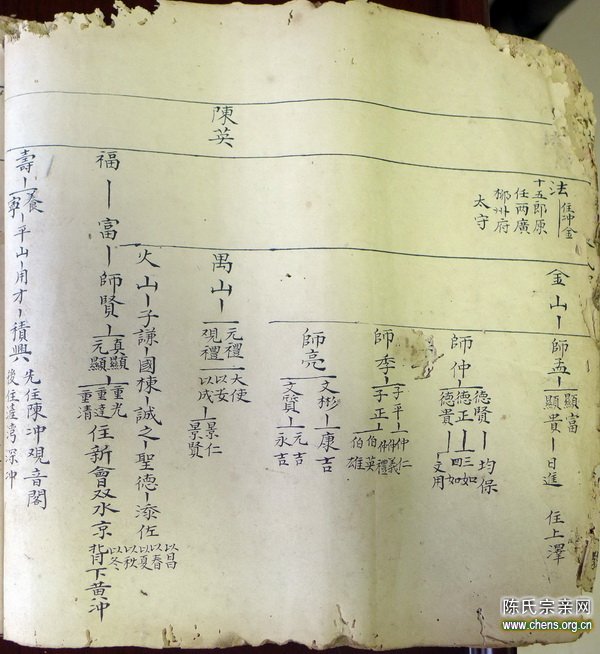 陳英
法
住冲金
十五郎原
任兩廣
柳州府
太守
金山
師孟
顯富
顯貴
日進
住上澤
師仲
德賢
德正
德貴
均保
三如
四如
文用
師季
子平
子正
仲仁
仲義
仲禮
伯英
伯雄
師亮
文彬
文賢
康吉
元吉
永吉
禺山
元禮
硯禮
大使
以安
以成
景仁
景賢
火山
子謙
國棟
誠之
聖德
添佐
以昌
以春
以夏
以秋
以冬
福
富
師賢
真顯
元顯
重光
重達
重清
住新會双水京背下黄冲
壽
養
寧
平山
用才
積興
先住陳冲觀音閣
後住蓬灣深冲
陈氏宗亲网
www.chens.org.cn